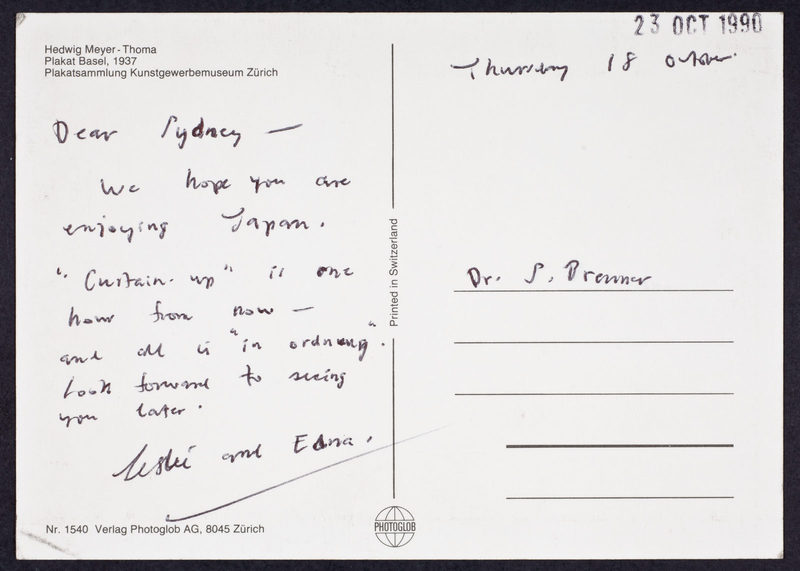 23 OCT 1990
Hedwig Meyer-Thoma
Plakat Basel, 1937
Plakatsammlung Kunstgewerbemuseum Zürich
Thursday 18 October.
Dear Sydney —
We hope you are
enjoying Japan.
"Curtain-up" is one
hour from now —
and all is "in ordnung".
Look forward to seeing
you later.
Leslie and Edna.
Dr. S. Brenner
Printed in Switzerland
Nr. 1540 Verlag Photoglob AG, 8045 Zürich
PHOTOGLOB